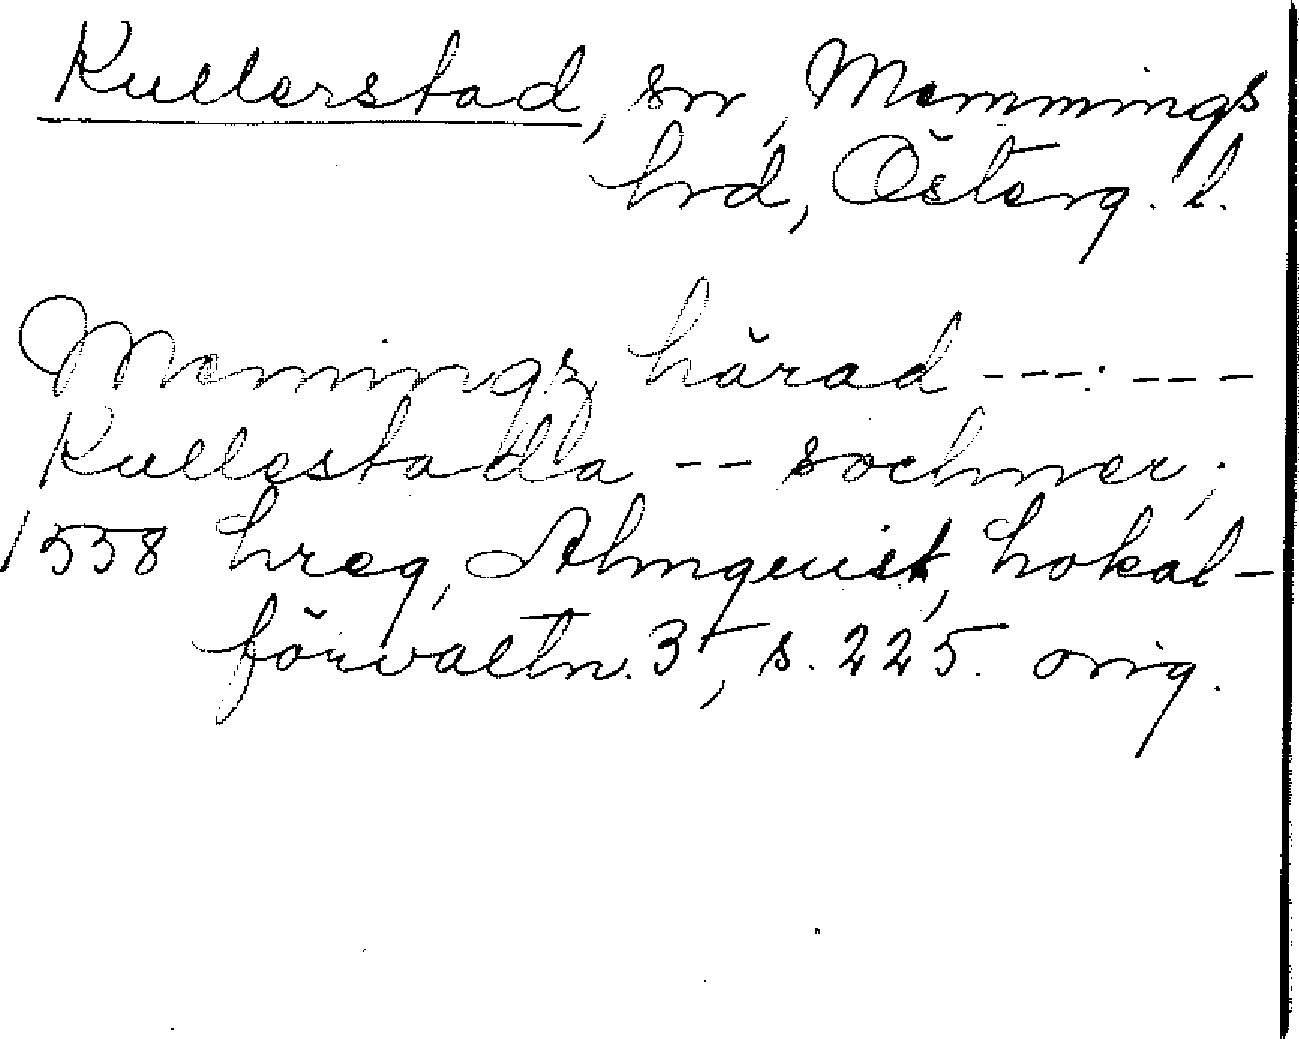 Kullerstad, sn, Memmings
hrd, Österg. l.
Memingz härad --- ---
Kullestadla -- sochner;
1558 hreg, Almquist, Lokal-
förvaltn. 3, s. 225. orig.